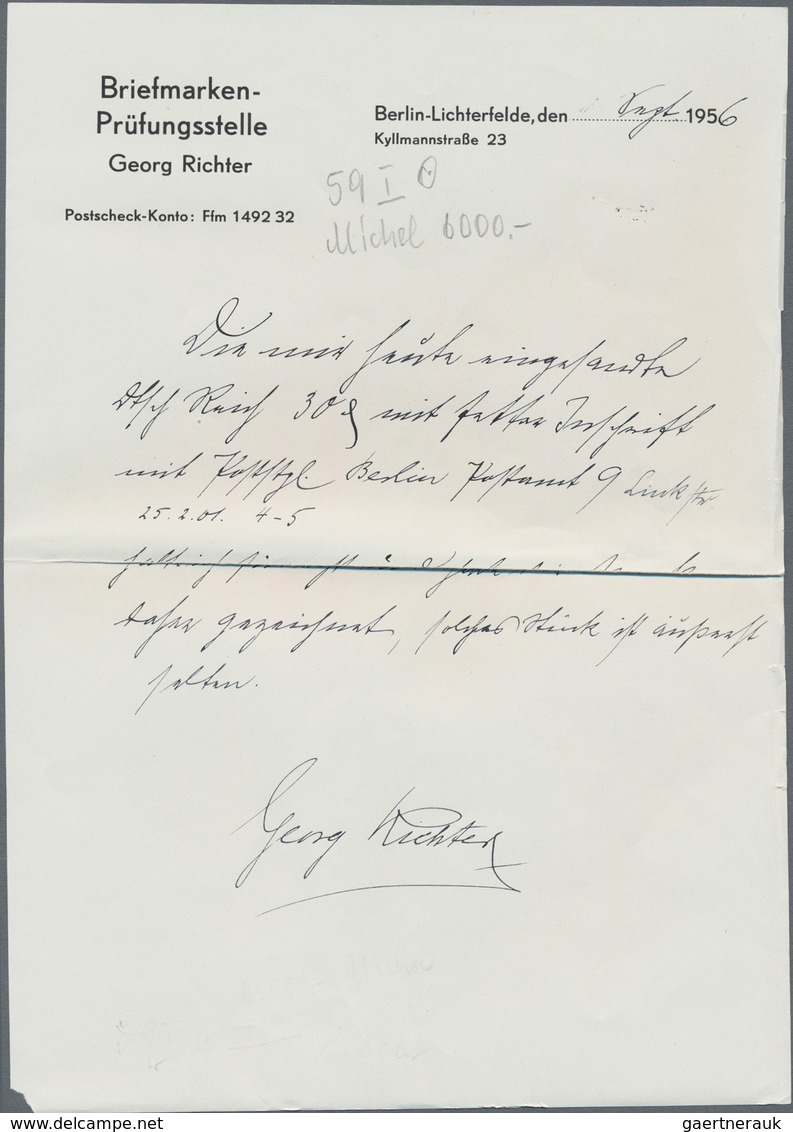 Briefmarken-
Prüfungsstelle
Georg Richter
Postscheck-Konto: Ffm 1492 32
Berlin-Lichterfelde, den Sept. 1956
Kyllmannstraße 23
59 I
Michel 6000.-
Die mir heute eingesandte
Dtsch Reich 30 ₰ mit fetter Inschrift
mit Poststpl. Berlin Postamt 9 Linkstr
25.2.01. 4-5
daher gezeichnet, solches Stück ist äußerst
selten.
Georg Richter
gaertnerauk